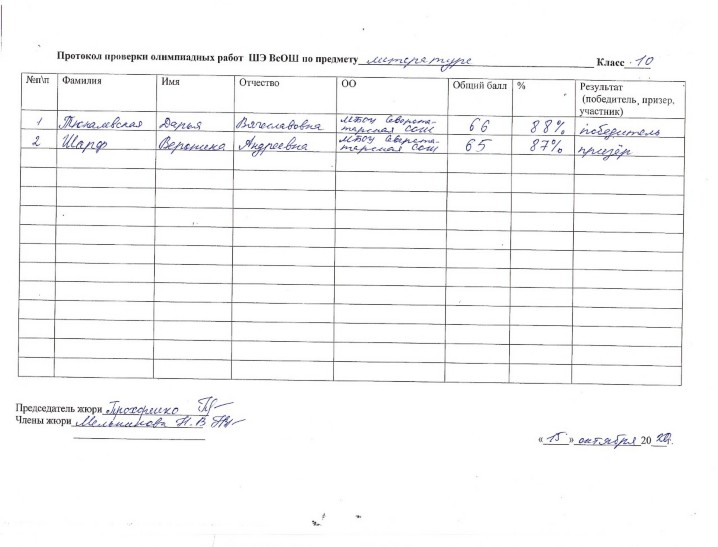 Протокол проверки олимпиадных работ ШЭ ВсОШ по предмету литературе Класс 10
№п\п Фамилия Имя Отчество ОО Общий балл % Результат
(победитель, призер,
участник)
1 Дарья Вячеславовна МБОУ Северо-та- 66 88% победитель
тарская СОШ
2 Шарф Вероника Андреевна МБОУ Северота- 65 87% призёр
тарская СОШ
Председатель жюри Прохоренко
Члены жюри Мельникова Н.В
« 15 » октября 20